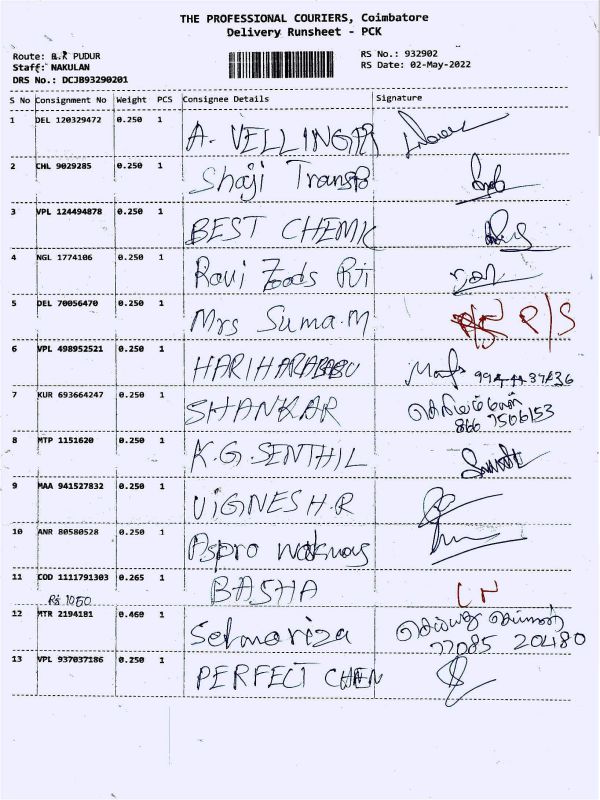 THE PROFESSIONAL COURIERS, Coimbatore
Delivery Runsheet - PCK
Route: B.K PUDUR
RS No.: 932902
Staff: NAKULAN
RS Date: 02-May-2022
DRS No.: DCJB93290201
S No Consignment No Weight PCS Consignee Details Signature
1 DEL 120329472 0.250 1 A. VELLINGIRI
2 CHL 9029285 0.250 1 Shaji Transpo
3 VPL 124494878 0.250 1 BEST CHEMIC
4 NGL 1774106 0.250 1 Ravi Foods Pvt
5 DEL 70056470 0.250 1 Mrs Suma.M P/S
6 VPL 498952521 0.250 1 HARIHARABABU
7 KUR 693664247 0.250 1 SHANKAR
866 7506153
8 MTP 1151620 0.250 1 K.G.SENTHIL
9 MAA 941527832 0.250 1 VIGNESH.R
10 ANR 80580528 0.250 1 Aspro
11 COD 1111791303 0.265 1 BASHA
RS 1050
12 MTR 2194181 0.460 1 Selmoriza
77085 20480
13 VPL 937037186 0.250 1 PERFECT CHEN